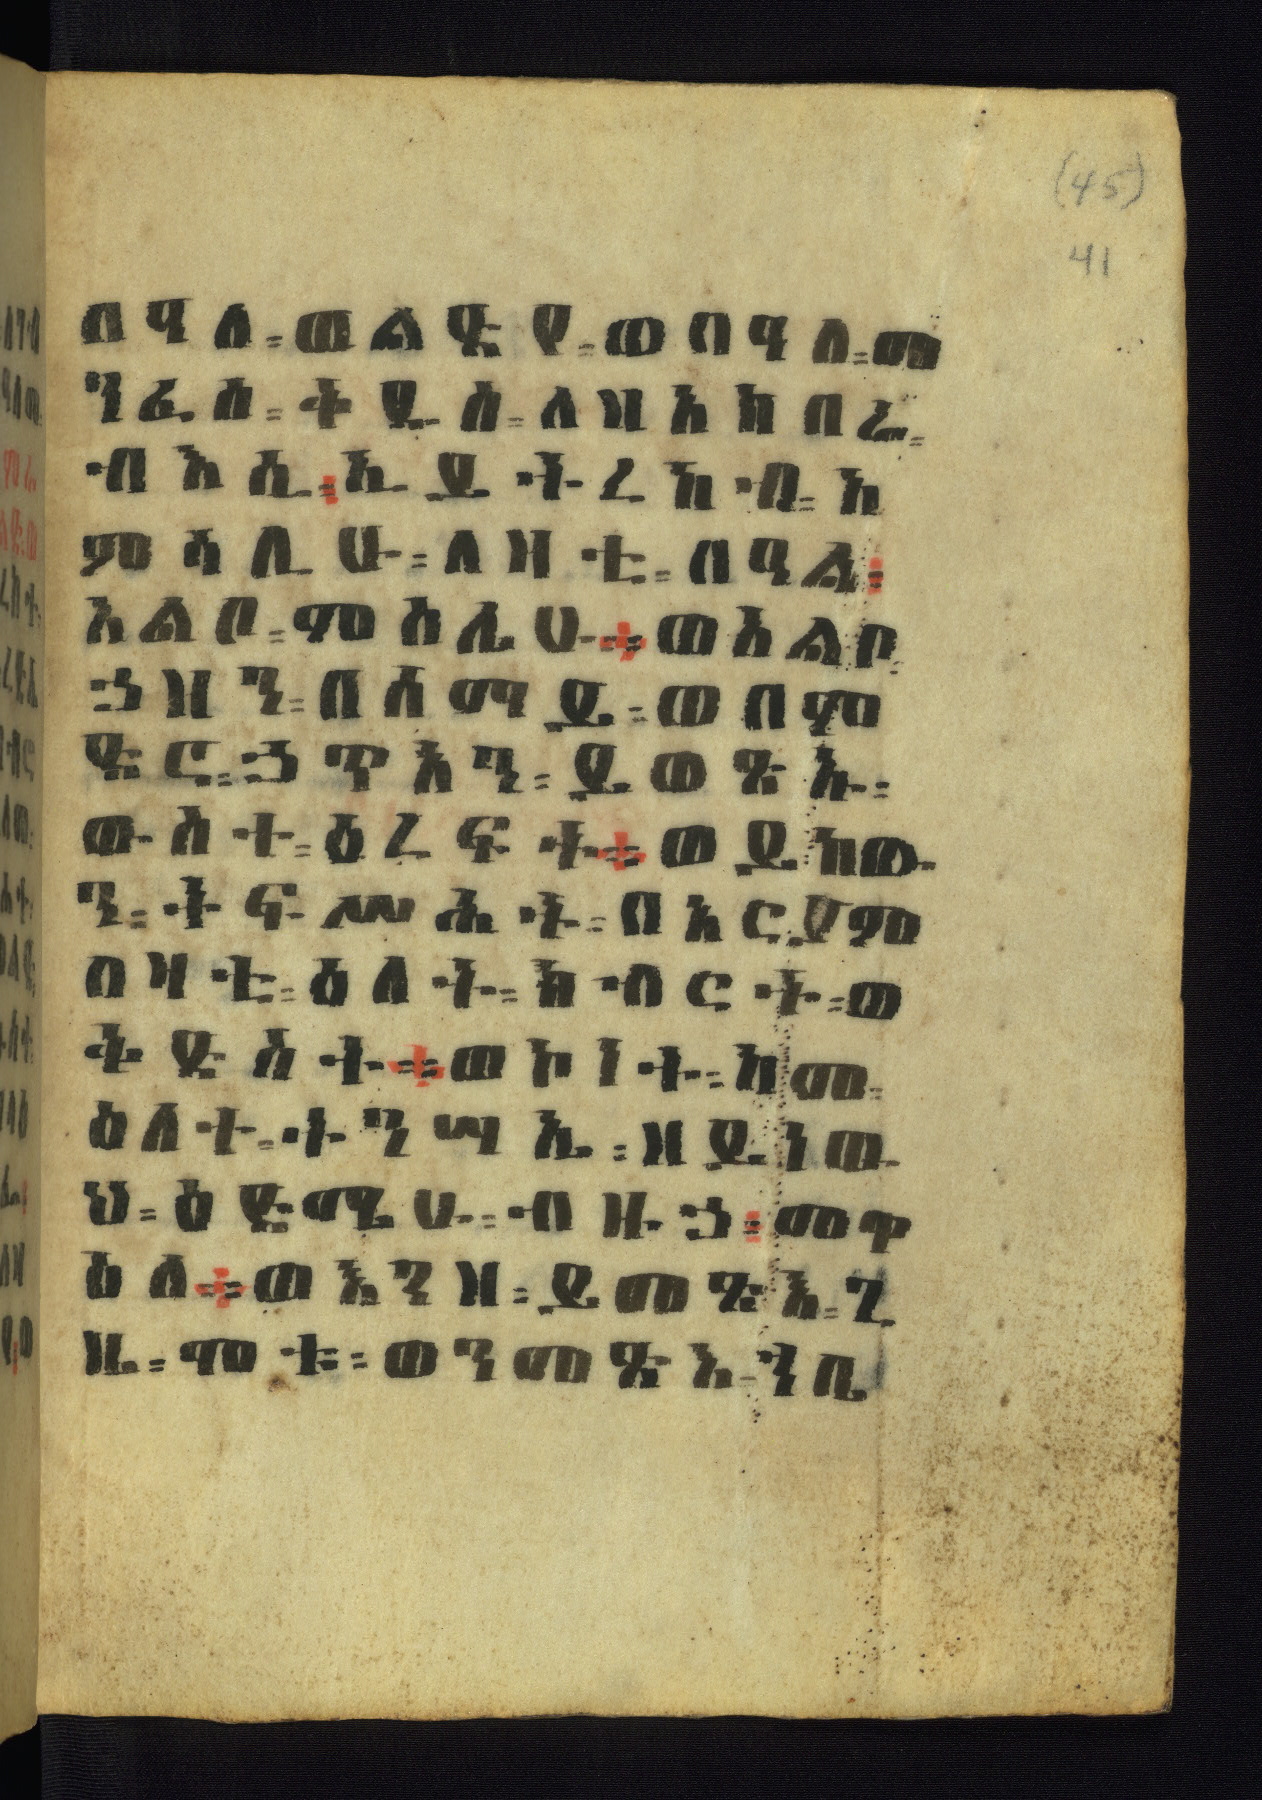 በዓለ፡ወልድየ፡ወበዓለ፡መ
ንፈስ፡ቅዱስ፡ለዝአክበሬ፡
ብእሲ፡ኢይትረከብ፡አ
ምሳሊሁ፡ለዛቲ፡በዓል፡
አልቦ፡ምስሊሁ።ወአልቦ፡
ኃዝን፡በሰማይ፡ወበም
ድር፡ኃጥአን፡ይወጽኡ፡
ውስተ፡ዕረፍት።ወይከው
ን፡ትፍሥሕት፡በአርያም
በዛቲ፡ዕለት፡ክብርት፡ወ
ቅድስት።ወኮነት፡ከመ፡
ዕለተ፡ትንሣኤ፡ዘይነው
ህ፡ዕድሜሁ፡ብዙኃ፡መዋ
ዕለ።ወእንዘ፡ይመጽእ፡ጊ
ዜ፡ሞቱ፡ወንመጽእ፡ኀቢ
(45)
41